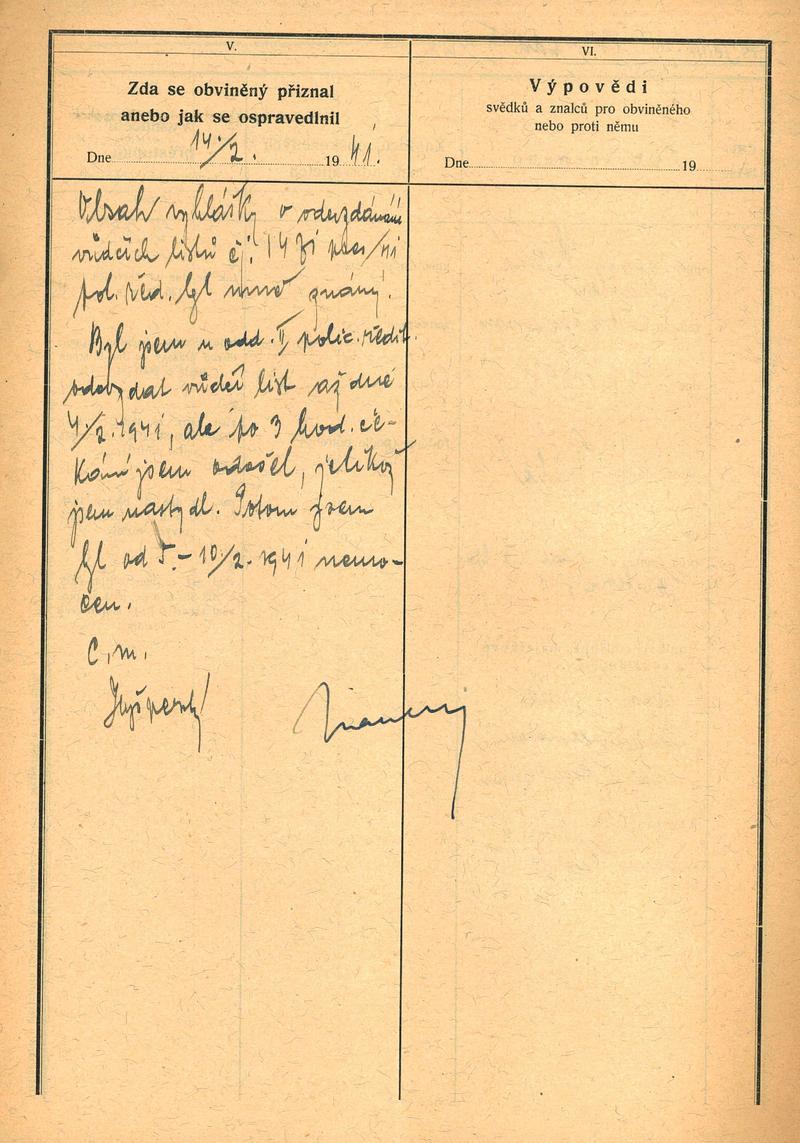 V.
Zda se obviněný přiznal
anebo jak se ospravedlnil
Dne 14./2. 1941.
Obsah vyhlášky o odevzdávání
vůdčích listů čj. 14 pres/41
pol. řed. byl mně známý.
Byl jsem u odd. II polic. ředit.
odevzdat vůdčí list až dne
4./2. 1941, ale po 3 hod. če-
kání jsem odešel, jelikož
jsem nastydl. Potom jsem
byl od 5. – 10./2. 1941 nemo-
cen.
C. m.
VI.
Výpovědi
svědků a znalců pro obviněného
nebo proti němu
Dne 19